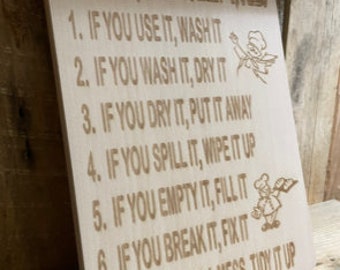 1. IF YOU USE IT, WASH IT
2. IF YOU WASH IT, DRY IT
3. IF YOU DRY IT, PUT IT AWAY
4. IF YOU SPILL IT, WIPE IT UP
5. IF YOU EMPTY IT, FILL IT
6. IF YOU BREAK IT, FIX IT
MESS, TIDY IT UP